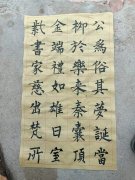 公為俗其夢誕當
柳於樂來秦囊頂
金端禮如雄日室
戴書家慈出梵所